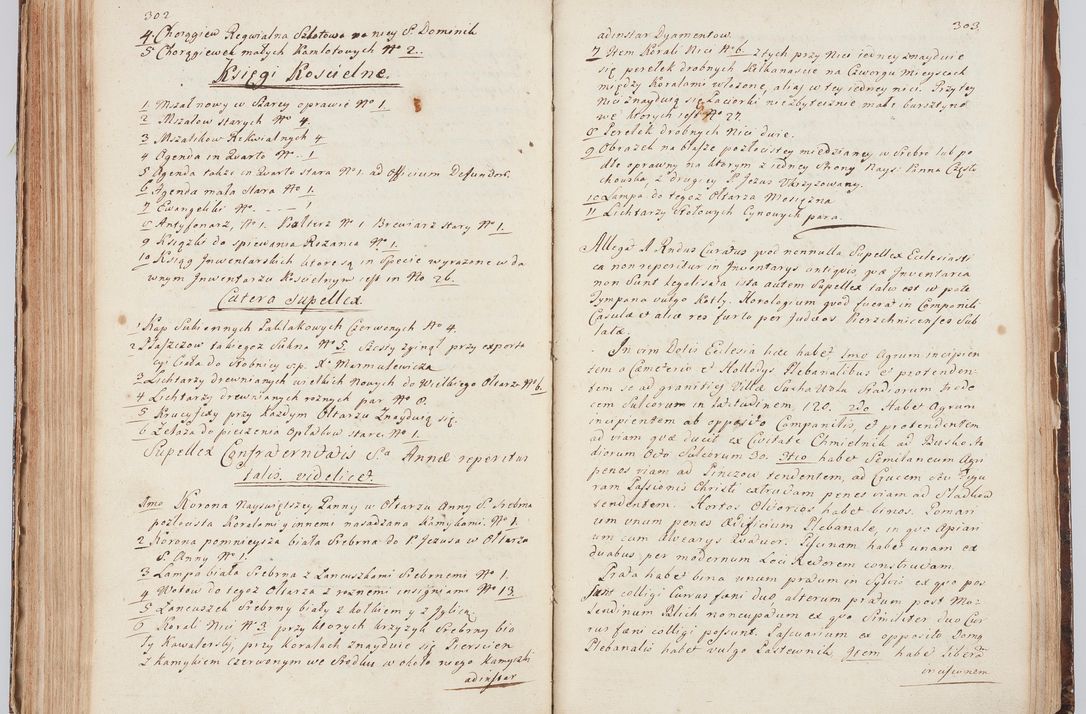 302
4. Chorągiew Reqwialna Szkotowa na niey S. Dominik
5 Chorągiewek małych Kamlotowych Nº 2.
Księgi Kościelne.
1 Mszał nowy w Szarey oprawie Nº 1
2 Mszałow starych Nº 4.
3 Mszalikow Rekwialnych 4
4 Agenda in Quarto Nº. 1
5 Agenda takze in Quarto stara Nº 1. ad Officium Defunctor.
6 Agenda mała stara Nº 1.
7 Ewangeliki Nº. - - - 1
8 Antyfonarz, Nº 1. Psałterz Nº 1 Brewiarz stary Nº 1.
9 Książki do spiewania Rozanca Nº 1.
10 Ksiąg Inwentarskich ktore są in specie wyrazone w da
wnym Inwentarzu Kościelnym jest in No 26.
Cætera Supellex
1 Kap Sukiennych Paklakowych Czerwonych Nº 4.
2 Płaszczow takiegoz Sukna Nº 5. Szosty zginął przy exporta
cyi Ciała do Stobnicy s.p. X. Marmulewicza
3 Lichtarzy drewnianych wielkich nowych do Wielkiego Ołtarza Nº 6.
4 Lichtarzy drewnianych roznych par Nº 8.
5 Krucyfixy przy kazdym Ołtarzu Znayduią się.
6 Zelaza do pieczenia Opłatkow stare Nº 1.
Supellex Confraternitatis Sæ Annæ reperitur
talis. videlicet.
Imo Korona Nayswiętszey Panny w Ołtarzu Anny S. Srebrna
pozłocista Koralami y innemi nasadzana kamykami. Nº 1.
2 Korona pomnieysza biała Srebrna do P. Jezusa w Ołtarzu
S. Anny Nº 1.
3 Lampa biała Srebrna z Lancuszkami Srebrnemi Nº 1.
4 Wotow do tegoz Ołtarza z roznemi insigniami Nº 13
5 Lancuszek srebrny biały z kolkiem y z Iglicą.
6 Korali Nici Nº 3 przy ktorych krzyzyk srebrny bia
ły Kawalerski, przy koralach znayduie się Pierscien
z kamykiem czerwonym we Srodku w około iego kamyszki
adinstar
303
adinstar Dyamentow.
7 Item Korali Nici Nº 6. z tych przy Nici iedney znayduie
się perełek drobnych kilkanascie na Czworgu mieyscach
między Koralami włozone, aliaſ w tey iedney nici. Przy tey
Nici znayduią się Paciorki niezbytecznie małe bursztyno
we ktorych jest Nº 27.
8 Perełek drobnych Nici dwie.
9 Obrazek na blasze pozłocistey miedzianey w Srebro lub po
dle oprawny na ktorym z iedney strony Nays: Panna Często
chowska, z drugiey P. Jezus Ukrzyzowany.
10 Lampa do tegoz Ołtarza Mosięzna
11 Lichtarzy stołowych Cynowych para.
Allegat A. Rndus Curatus quod nonnulla Supellex Ecclesiasti
ca non reperitur in Inventarys antiquis, quæ Inventaria
non sunt legalisata ista autem Supellex talis est ut puta
Tympana vulgo Kotły. Horologium quod fuerat in Companili
Casulæ et aliæ res furto per Judæos Pierzchnicenses Sub
latæ.
In cem Dotis Ecclesia hæc habet Imo Agrum incipien
tem a Cæmeterio et Hollodys Plebanalibus et protenden
tem se ad granities Villæ Sucha Wola Stadiorum Sede
cem Sulcorum in latitudinem, 120. 2do Habet Agrum
incipientem ab opposito Companilis, et protendentem
ad viam quæ ducit ex Civitate Chmielnik ad Busko. Sta
diorum Octo Sulcorum 30. 3tio habet Semilaneum Agri
penes viam ad Pinczow tendentem, ad Crucem seu Figu
ram Passionis Christi extructam penes viam ad Sladkow
tendentem. Hortos Olitorios habet binos. Pomari
um unum penes Ædificium Plebanale, in quo Apiari
um cum alvearys Quatuor. Piscinam habet unam ex
duabus, per modernum Loci Rectorem constructam.
Prata habet bina unum pratum in Sylvis ex quo pos
sunt colligi Currus fæni duo, alterum pratum post Mo
lendinum Blich noncupatum ex quo Similiter duo Cur
rus fæni colligi possunt. Pascuarium ex opposito Domus
Plebanalis habet vulgo Pastewnik. Item habet liberam
incisionem